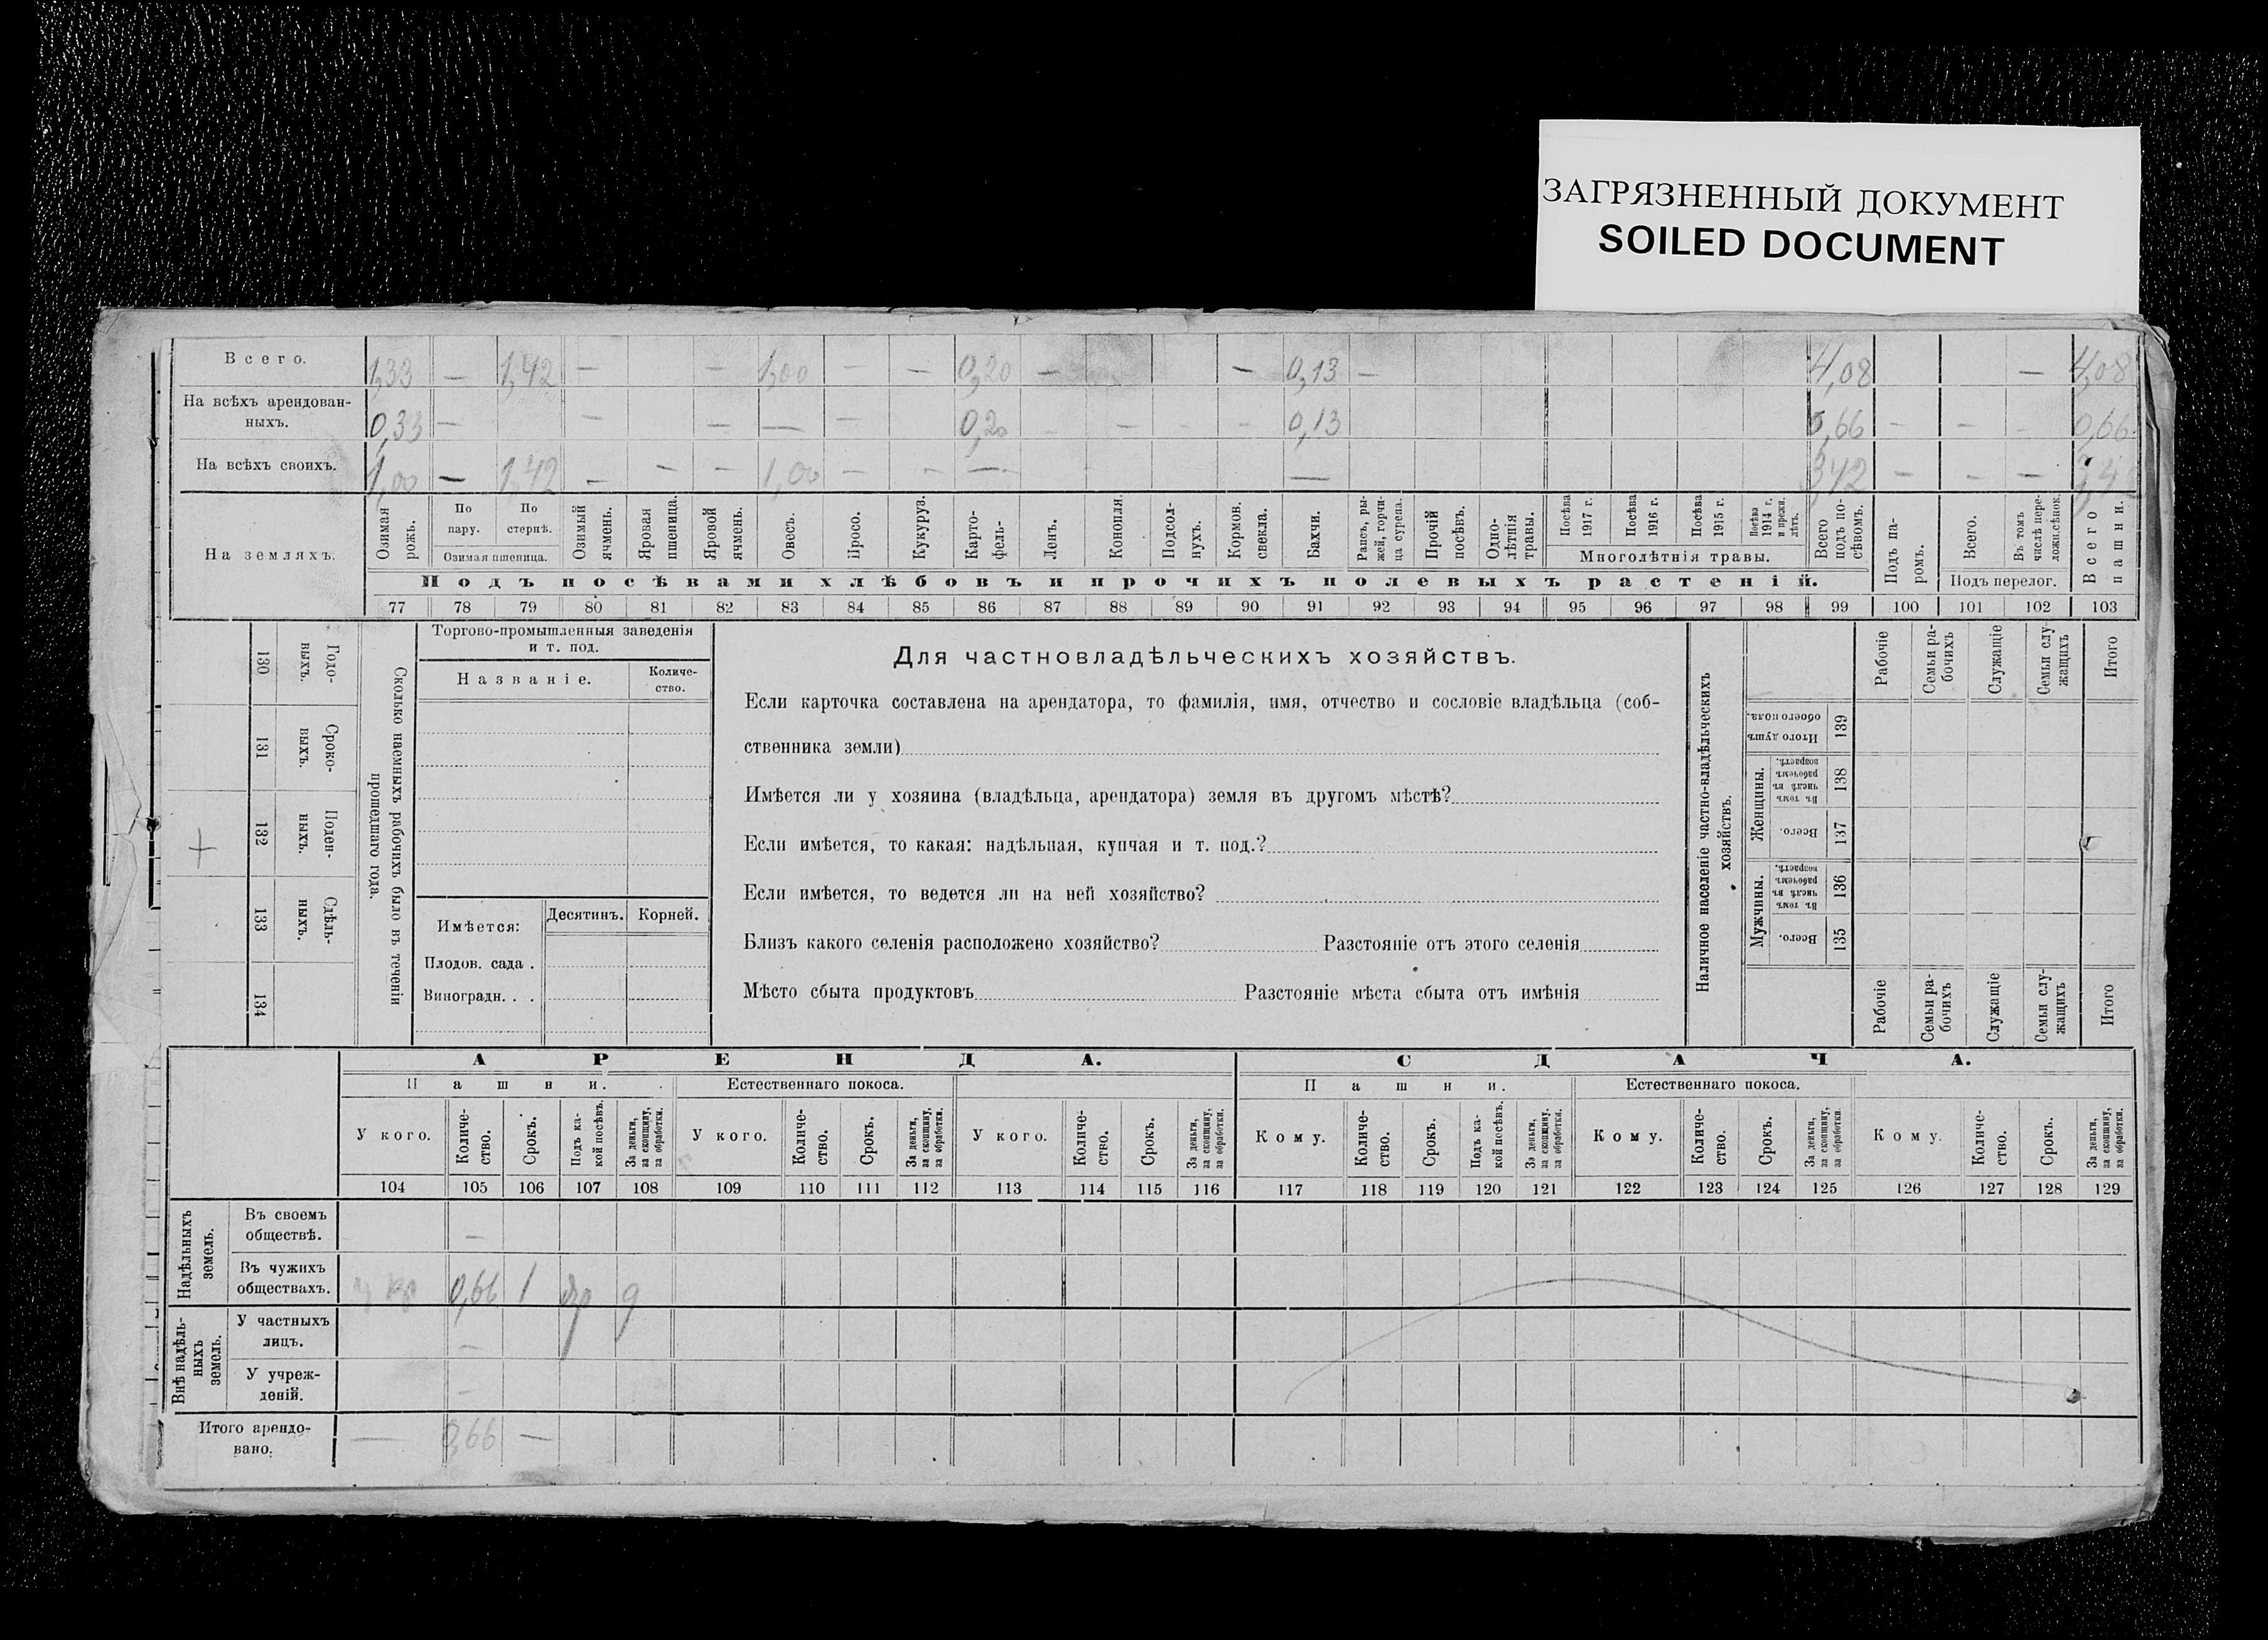 ЗАГРЯЗНЕННЫЙ ДОКУМЕНТ
SOILED DOCUMENT
Всего. 1,33 — 1,42 — — 1,00 — — 0,20 — — 0,13 — 4,08 — 4,08
На всѣхъ арендован-
ныхъ. 0,33 — — — — — 0,20 — — — — 0,13 0,66 — — — 0,66
На всѣхъ своихъ. 1,00 — 1,42 — — — 1,00 — — — — 3,42 — — —
На земляхъ.
Озимая рожь.
По пару.
По стернѣ.
Озимая пшеница.
Озимый ячмень.
Яровая пшеница.
Яровой ячмень.
Овесъ.
Просо.
Кукуруз.
Карто-
фель-
Ленъ.
Конопля.
Подсол-
нухъ.
Кормов. свекла.
Бахчи.
Рапсъ, ры-
жей, горчи-
ца сурепа.
Прочій посѣвъ.
Одно-
лѣтнія
травы.
Посѣва 1917 г.
Посѣва 1916 г.
Посѣва 1915 г.
Посѣва 1914 г. и прежн. лѣтъ.
Многолѣтнія травы.
Всего подъ по-
сѣвомъ.
Подъ па-
ромъ.
Всего.
Въ томъ числѣ пере-
ложн.сѣнок.
Подъ перелог.
Всего пашни.
Подъ посѣвами хлѣбовъ и прочихъ полевыхъ растеній.
77 78 79 80 81 82 83 84 85 86 87 88 89 90 91 92 93 94 95 96 97 98 99 100 101 102 103
130 Годо-
ныхъ.
131 Сроко-
ныхъ.
132 Поден-
ныхъ.
+
133 Сдѣль-
ныхъ.
134
Сколько наемныхъ рабочихъ было въ теченіи
прошедшаго года.
Торгово-промышленныя заведенія
и т. под.
Названіе.
Количе-
ство.
Имѣется:
Десятинъ.
Корней.
Плодов. сада .
Виноградн. . .
Для частновладѣльческихъ хозяйствъ.
Если карточка составлена на арендатора, то фамилія, имя, отчество и сословіе владѣльца (соб-
ственника земли)
Имѣется ли у хозяина (владѣльца, арендатора) земля въ другомъ мѣстѣ?
Если имѣется, то какая: надѣльная, купчая и т. под.?
Если имѣется, то ведется ли на ней хозяйство?
Близъ какого селенія расположено хозяйство? Разстояніе отъ этого селенія
Мѣсто сбыта продуктовъ Разстояніе мѣста сбыта отъ имѣнія
Наличное населеніе частно-владѣльческихъ
хозяйствъ.
Рабочіе
Семьи ра-
бочихъ
Служащіе
Семьи слу-
жащихъ
Итого
Итого душъ обоего пола. 139
Женщины.
Въ томъ числѣ въ рабочемъ возрастѣ. 138
Всего. 137
Мужчины.
Въ томъ числѣ въ рабочемъ возрастѣ. 136
Всего. 135
Рабочіе
Семьи ра-
бочихъ
Служащіе
Семьи слу-
жащихъ
Итого
АРЕНДА.
СДАЧА.
Пашни.
Естественнаго покоса.
Пашни.
Естественнаго покоса.
У кого.
Количе-
ство.
Срокъ.
Подъ ка-
кой посѣвъ.
За деньги,
за скопщину,
за обработки.
У кого.
Количе-
ство.
Срокъ.
За деньги,
за скопщину,
за обработки.
У кого.
Количе-
ство.
Срокъ.
За деньги,
за скопщину,
за обработки.
Кому.
Количе-
ство.
Срокъ.
Подъ ка-
кой посѣвъ.
За деньги,
за скопщину,
за обработки.
Кому.
Количе-
ство.
Срокъ.
За деньги,
за скопщину,
за обработки.
Кому.
Количе-
ство.
Срокъ.
За деньги,
за скопщину,
за обработки.
104 105 106 107 108 109 110 111 112 113 114 115 116 117 118 119 120 121 122 123 124 125 126 127 128 129
Надѣльныхъ
земель.
Въ своемъ
обществѣ. —
Въ чужихъ
обществахъ. 0,66 1 яр д
Внѣ надѣль-
ныхъ
земель.
У частныхъ
лицъ. —
У учреж-
деній. —
Итого арендо-
вано. — 0,66 —